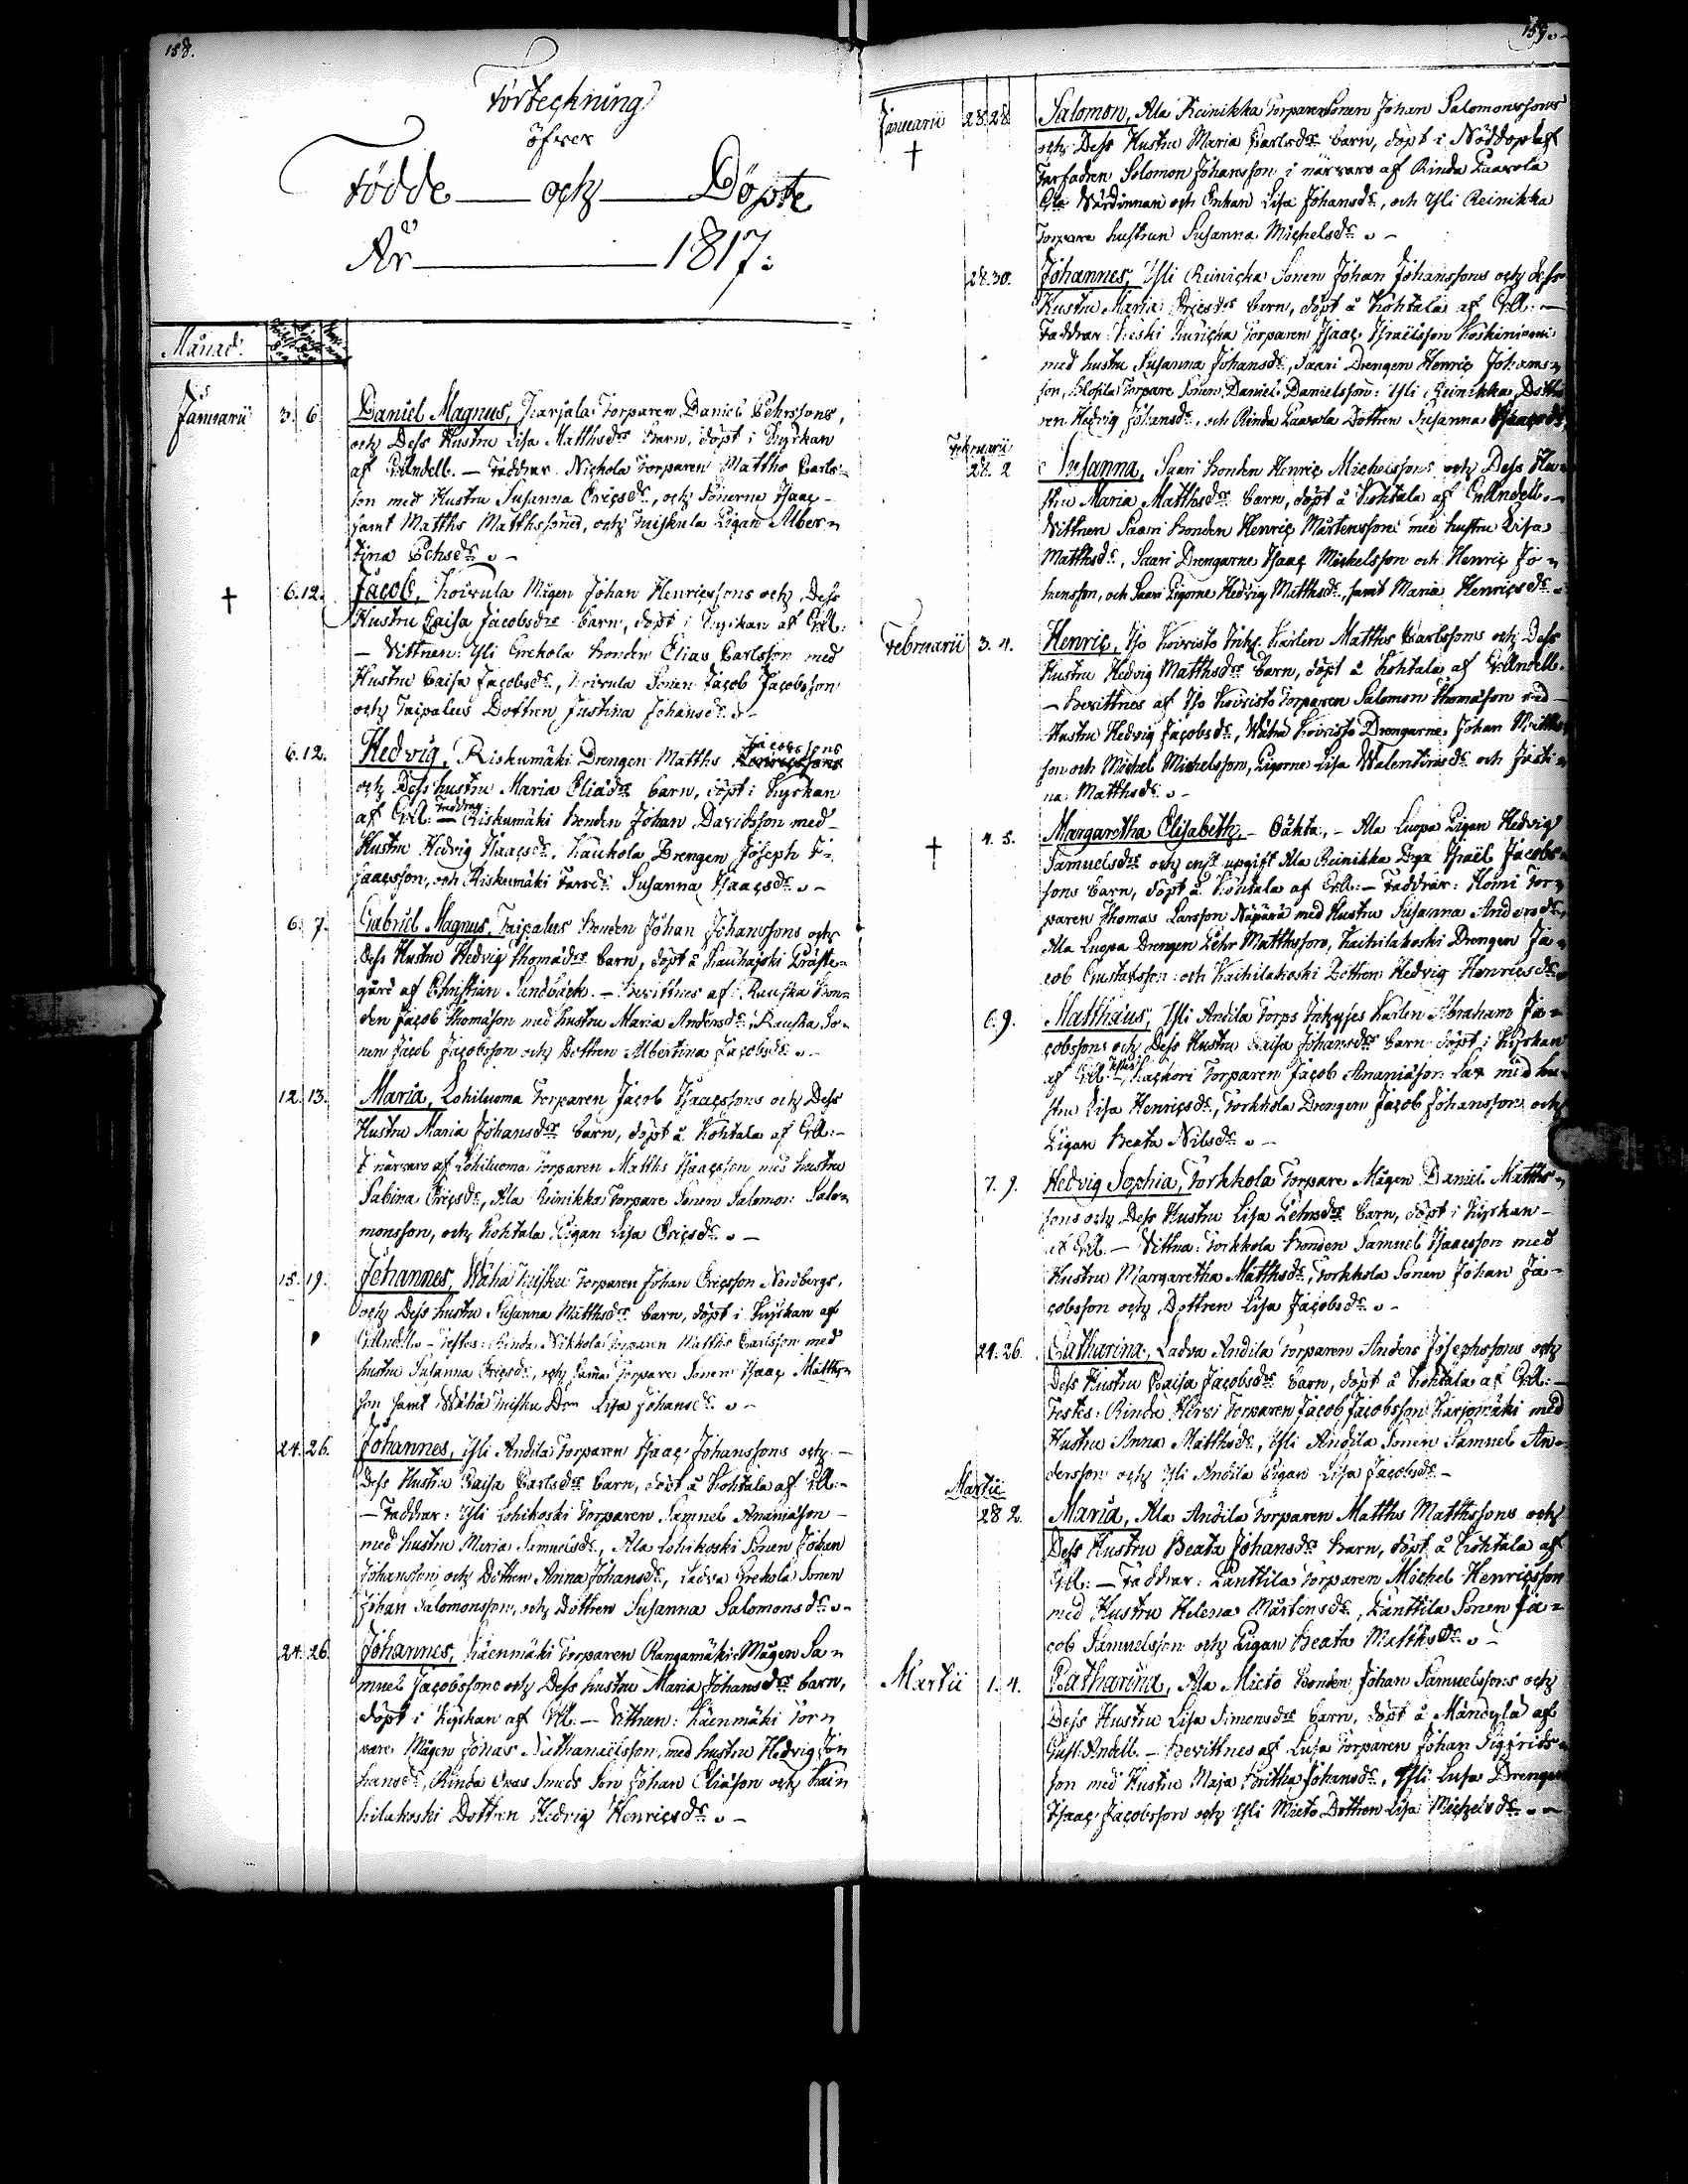 158.
Förteckning
öfver
Födde och Döpte
År 1817:
Månad:
Januarii 3. 6. Daniel Magnus, Karjala Torparen Daniel Pehrssons,
och Dess Hustru Lisa Matthsdrs Barn, döpt i Kyrkan
af Ekl: Andell. — Faddrar Nichola Torparen Matths Carls-
son med Hustru Susanna Ericsdr, och Sönerna Isaac
samt Matths Matthssöner, och Pigan Alber-
tina
† 6. 12. Jacob, Koivula Mågen Johan Henricssons och Dess
Hustru Caisa Jacobsdrs Barn, döpt i Kyrkan af
— Vittnen: Yli Grekola Bonden Elias Carlsson med
Hustru Caisa Jacobsdr, Koivula Sonen Jacob Jacobsson
och Taipalus Dottren Justina Johansdr. –
6. 12. Hedvig, Riskumäki Drengen Matths Jacobssons
och Dess hustru Maria Eliædrs barn, döpt i Kyrkan
af — Faddrar Riskumäki Bonden Johan Davidsson med
Hustru Hedvig Isaacsdr, Kauhola Drengen Joseph I-
saacsson, och Riskumäki Susanna Isaacsdr. –
6. 7. Gabriel Magnus, Taipalus Bonden Johan Johanssons och
Dess Hustru Hedvig Thomædrs barn, döpt å Kauhajoki Präste-
gård af Christian Sundbäck. — Bevittnes af Rauska Bon-
den Jacob Thomasson med hustru Maria Andersdr, Rauska So-
nen Jacob Jacobsson och Dottren Albertina Jacobsdr. –
12. 13. Maria, Lohiluoma Torparen Jacob Isaacssons och Dess
Hustru Maria Johansdrs barn, döpt å Kohtala af
i närvaro af Lohiluoma Torparen Matths Isaacsson med hustru
Sabina Ericsdr, Ala Reinikka Torpare Sonen Salomon Salo-
monsson, och Kohtala Pigan Lisa Ericsdr. –
15. 19. Johannes, Wäha Torparen Johan Ericsson Nordbergs,
och Dess hustru Susanna Matthsdrs barn, döpt i Kyrkan af
Testes: Rinda Nikkola Torparen Matths Carlsson med
hustru Susanna Ericsdr, och samma Torpare Sonen Isaac Matths-
son samt Wäha Lisa Johansdr. –
24. 26. Johannes, Yli Andila Torparen Isaac Johanssons och
Dess Hustru Caisa Carlsdrs barn, döpt å Kohtala af
— Faddrar: Yli Lohikoski Torparen Samuel Ananiasson
med hustru Maria Samuelsdr, Ala Lohikoski Sonen Johan
Johansson och Dottren Anna Johansdr, Ladva Grekola Sonen
Johan Salomonsson, och Dottren Susanna Salomonsdr. –
24. 26. Johannes, Käenmäki Torparen Rangamäki Mågen Sa-
muel Jacobssons och Dess hustru Maria Johansdrs barn,
döpt i Kyrkan af — Vittnen: Käenmäki Tor-
pare Mågen Jonas Nathanaëlsson, med hustru Hedvig Jo-
hansdr, Rinda Son Johan Eliæson och Kai-
hilakoski Dottren Hedvig Henricsdr. –
159.
Januarii † 28. 28. Salomon, Ala Reinikka Torparen Sonen Johan Salomonssons
och Dess Hustru Maria Carlsdrs barn, döpt i Nöddop af
Farfadren Salomon Johansson i närvaro af Rinda Laavola
Wärdinnan och Enkan Lisa Johansdr, och Yli Reinikka
Torpare hustrun Susanna Michelsdr. –
28. 30. Johannes, Yli Reinicka Sonen Johan Johanssons och dess
Hustru Maria Ericsdrs barn, döpt å Kohtala af
Faddrar: Torparen Isaac Israëlsson Koskiniemi
med hustru Susanna Johansdr, Saari Drengen Henric Johans-
son, Torpare Sonen Daniel Danielsson: Yli Reinikka Dott-
ren Hedvig Johansdr, och Rinda Laavola Dottren Susanna Isaacsdr
Februarii
28. 2. Susanna, Saari bonden Henric Michelssons och Dess Hu-
stru Maria Matthsdrs barn, döpt å Kohtala af
Vittnen Saari bonden Henric Mårtensson med hustru Lisa
Matthsdr, Saari Drengarne Isaac Michelsson och Henric Jo-
hansson, och Saari Pigorne Hedvig Matthsdr, samt Maria Henricsdr.
Februarii 3. 4. Henric, Iso Koivisto Inhs. Karlen Matths Carlssons och Dess
Hustru Hedvig Matthsdrs barn, döpt å Kohtala af
— Bevittnes af Iso Koivisto Torparen Salomon Thomasson med
Hustru Hedvig Jacobsdr, Wäha Koivisto Drengarne Johan Matths-
son och Michel Michelsson, Pigorne Lisa Walentinsdr och Justi-
na Matthsdr. –
† 4. 5. Margaretha Elisabeth, – Oäkta, – Ala Luopa Pigan Hedvig
Samuelsdrs och enl. upgift Ala Reinikka Israël Jacobs-
sons barn, döpt å Kohtala af — Faddrar: Tor-
paren Thomas Larsson med Hustru Susanna Andersdr,
Ala Luopa Drengen Pehr Matthsson, Kaihilakoski Drengen Ja-
cob Gustafsson och Kaihilakoski Dottren Hedvig Henricsdr
6. 9. Matthæus, Yli Andila Torps Inhyses Karlen Abraham Ja-
cobssons och Dess Hustru Caisa Johansdrs barn döpt i Kyrkan
af Testes Torparen Jacob Ananiasson med hu-
stru Lisa Henricsdr, Torkkola Drengen Jacob Johansson och
Pigan Beata Nilsdr. –
7. 9. Hedvig Sophia, Torkkola Torpare Mågen Daniel Matths-
sons och Dess Hustru Lisa Pehrsdrs barn, döpt i Kyrkan
af — Vittna: Torkkola bonden Samuel Isaacsson med
Hustru Margaretha Matthsdr, Torkkola Sonen Johan Ja-
cobsson och Dottren Lisa Jacobsdr. –
24. 26. Catharina, Ladva Andila Torparen Anders Josephssons och
Dess Hustru Caisa Jacobsdrs barn, döpt å Kohtala af
Testes: Rinda Hirvi Torparen Jacob Jacobsson Karjomäki med
Hustru Anna Matthsdr, Yli Andila Sonen Samuel An-
dersson och Yli Andila Pigan Lisa Jacobsdr –
Martii
28 2. Maria, Ala Andila Torparen Matths Matthssons och
Dess Hustru Beata Johansdrs barn, döpt å Kohtala af
— Faddrar: Panttila Torparen Michel Henricsson
med Hustru Helena Mårtensdr, Panttila Sonen Ja-
cob Samuelsson och Pigan Beata Matthsdr. –
Martii 1. 4. Catharina, Ala Mieto Bonden Johan Samuelssons och
Dess Hustru Lisa Simonsdrs barn, döpt å Mändylä af
Gust: Andell. — Bevittnes af Lusa Torparen Johan Sigfrids-
son med Hustru Maja Johansdr, Yli Lusa Drengen
Isaac Jacobsson och Yli Mieto Dottren Lisa Michelsdr. –